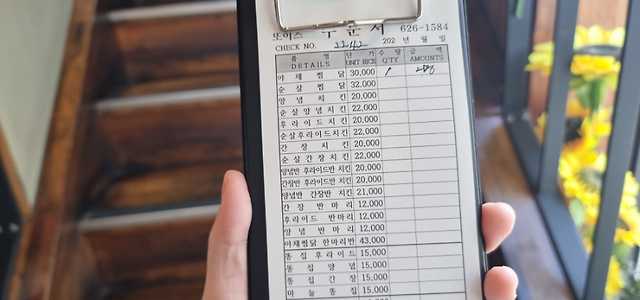 또이스 주문서 626-1584
CHECK NO. 2242 202 년 월 일
품 명 단 가 수 량 금 액
DETAILS UNIT RICE Q'TY AMOUNTS
야채찜닭 30,000 1
순살찜닭 32,000
양념치킨 20,000
순살양념치킨 22,000
후라이드치킨 20,000
순살후라이드치킨 22,000
간장치킨 20,000
순살간장치킨 22,000
양념반 후라이드반 치킨 20,000
간장반 후라이드반 치킨 20,000
양념반 간장반 치킨 21,000
간장 반마리 12,000
후라이드 반마리 12,000
양념 반마리 12,000
야채찜닭 한마리반 43,000
똥집후라이드 15,000
똥집양념 15,000
똥집간장 15,000
마늘똥집 15,000